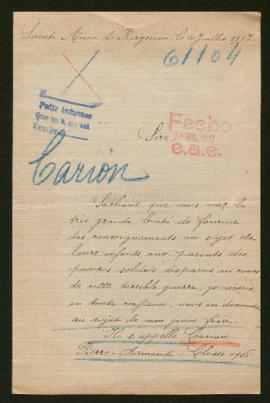 Sainte Anne de Kergonan, le 20 Juillet 1917
61104
Pedir informes
Que se h
Fecho
30 JUL. 1917
e.a.e.
Sire
Carion
Sachant que vous avez la
très grande bonté de fournir
des renseignements au sujet de
leurs enfants aux parents des
pauvres soldats disparus au cours
de cette terrible guerre, je viens,
en toute confiance, vous en demander
au sujet de mon jeune frère.
Il s'appelle Carion
Pierre-Armand. Classe 1908